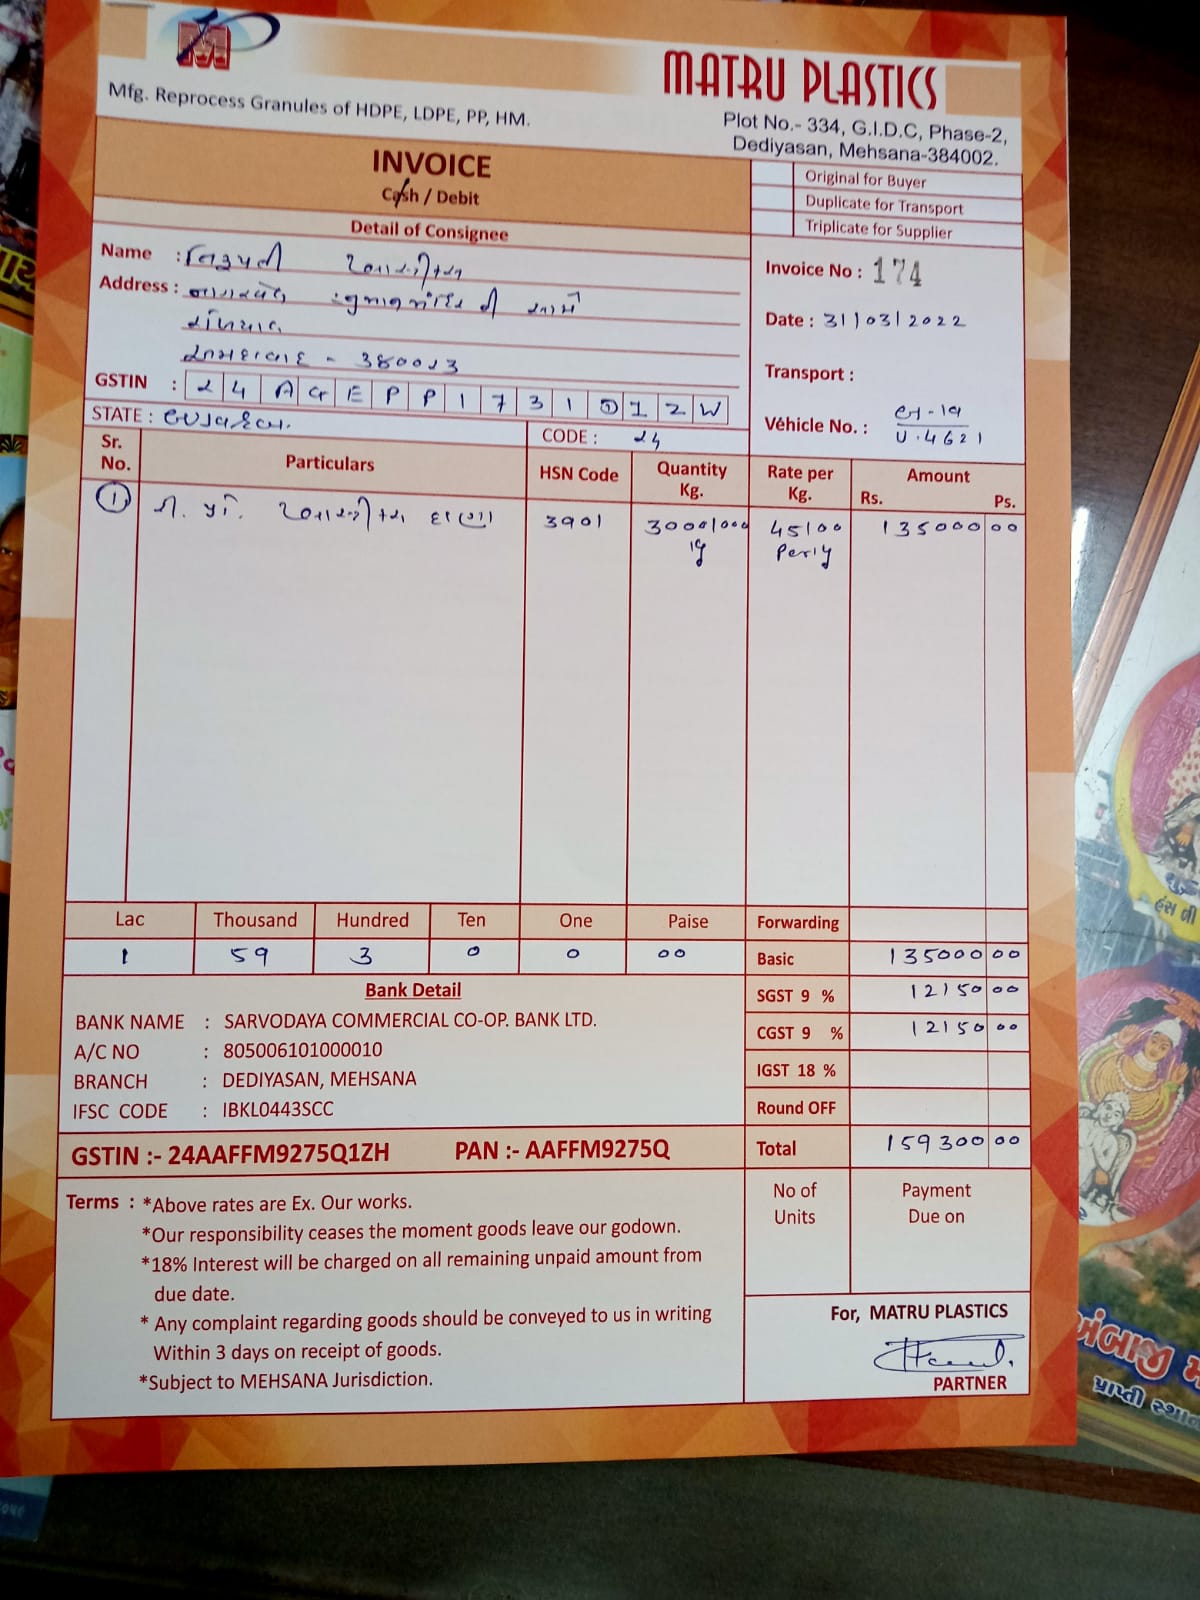 M
MATRU PLASTICS
Mfg. Reprocess Granules of HDPE, LDPE, PP, HM.
Plot No.- 334, G.I.D.C, Phase-2,
Dediyasan, Mehsana-384002.
INVOICE
Cash / Debit
Original for Buyer
Duplicate for Transport
Triplicate for Supplier
Detail of Consignee
Name :
Address :
380023
GSTIN :
STATE : ગુજરાત.
CODE : 24
Invoice No : 174
Date : 31/03/2022
Transport :
Vehicle No. :
U.4621
Sr. No. Particulars HSN Code Quantity Kg. Rate per Kg. Amount Rs. Ps.
1 પ્લાસ્ટીક દાણા 3901 3000/000 45/00 135000 00
Lac Thousand Hundred Ten One Paise Forwarding
1 59 3 0 0 00 Basic 135000 00
Bank Detail
SGST 9 % 12150 00
BANK NAME : SARVODAYA COMMERCIAL CO-OP. BANK LTD.
CGST 9 % 12150 00
A/C NO : 805006101000010
IGST 18 %
BRANCH : DEDIYASAN, MEHSANA
IFSC CODE : IBKL0443SCC
Round OFF
GSTIN :- 24AAFFM9275Q1ZH PAN :- AAFFM9275Q
Total 159300 00
Terms : *Above rates are Ex. Our works.
*Our responsibility ceases the moment goods leave our godown.
*18% Interest will be charged on all remaining unpaid amount from
due date.
* Any complaint regarding goods should be conveyed to us in writing
Within 3 days on receipt of goods.
*Subject to MEHSANA Jurisdiction.
No of Units
Payment Due on
For, MATRU PLASTICS
PARTNER
અંબાજી
પ્રાપ્તી સ્થાન